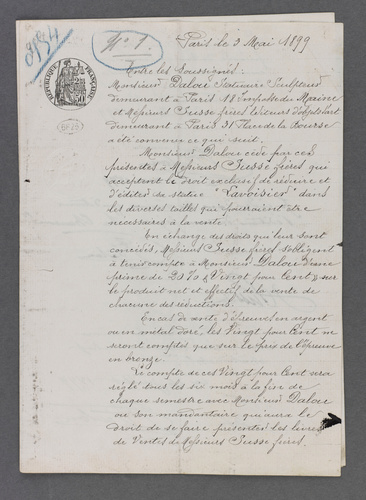 8184
N° 1
Paris le 3 Mai 1899
RÉPUBLIQUE FRANÇAISE
50
Entre les Soussignés:
Monsieur Dalou Statuaire Sculpteur
demeurant à Paris 18 Impasse du Maine
et Messieurs Susse frères Editeurs d'objets d'art
demeurant à Paris 31 Place de la Bourse
a été convenu ce qui suit:
Monsieur Dalou cède par ces
présentes à Messieurs Susse frères qui
acceptent le droit exclusif de réduire et
d'éditer sa statue "Lavoisier" dans
les diverses tailles qui pourraient être
nécessaires à la vente.
En échange des droits qui leur sont
concédés, Messieurs Susse frères s'obligent
à tenir compte à Monsieur Dalou d'une
prime de 20% Vingt pour Cent sur
le produit net et effectif de la vente de
chacune des réductions.
En cas de vente d'épreuves en argent
ou en métal doré, les Vingt pour Cent ne
seront comptés que sur le prix de l'épreuve
en bronze.
Le compte de ces Vingt pour Cent sera
réglé tous les six mois à la fin de
chaque semestre avec Monsieur Dalou
ou son mandataire qui aura le
droit de se faire présenter les livres
de Ventes de Messieurs Susse frères.